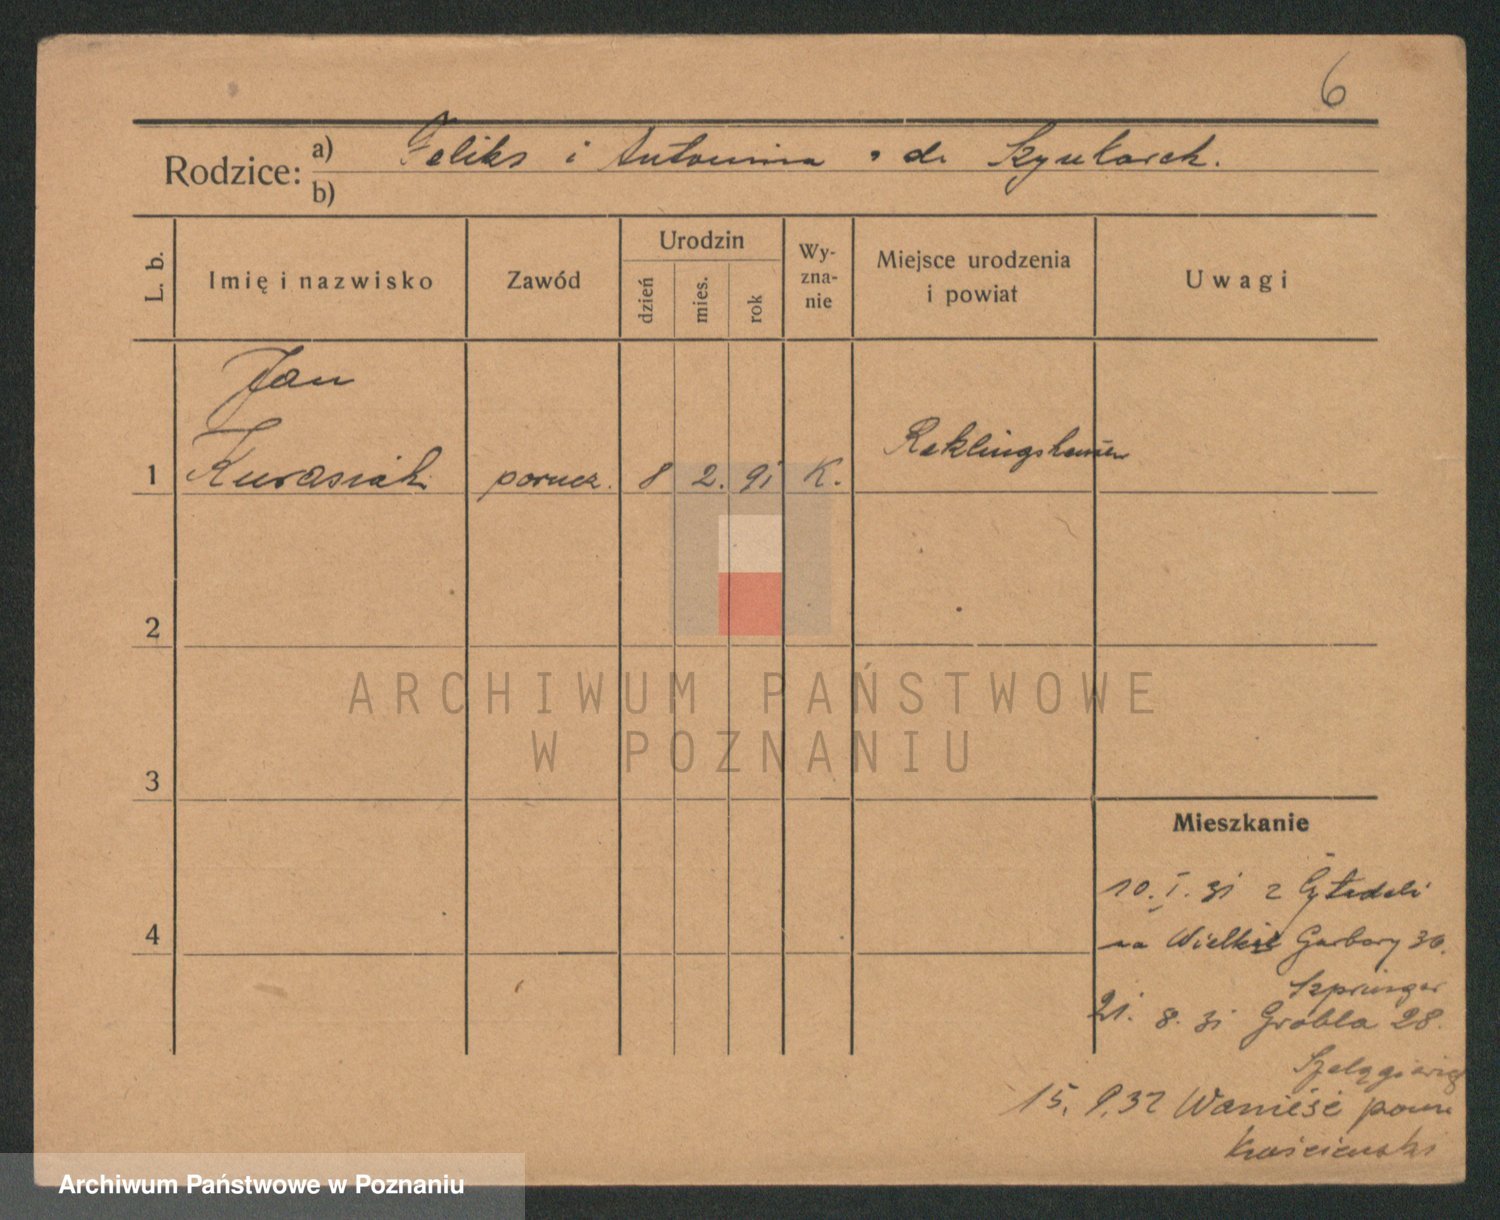 6
Rodzice: a) Feliks i Antonina z d.
b)
L. b.
Imię i nazwisko
Zawód
Urodzin
dzień
mies.
rok
Wy-
zna-
nie
Miejsce urodzenia
i powiat
Uwagi
Jan
1 Kurasiak porucz. 8 2. 91 K. Reklingshausen
2
3
4
ARCHIWUM PAŃSTWOWE
W POZNANIU
Mieszkanie
10. I. 31 z Cytadeli
na Wielkie Garbary 30.
Szpringer
21. 8. 31 Grobla 28.
15. 9. 32 pow.
Archiwum Państwowe w Poznaniu